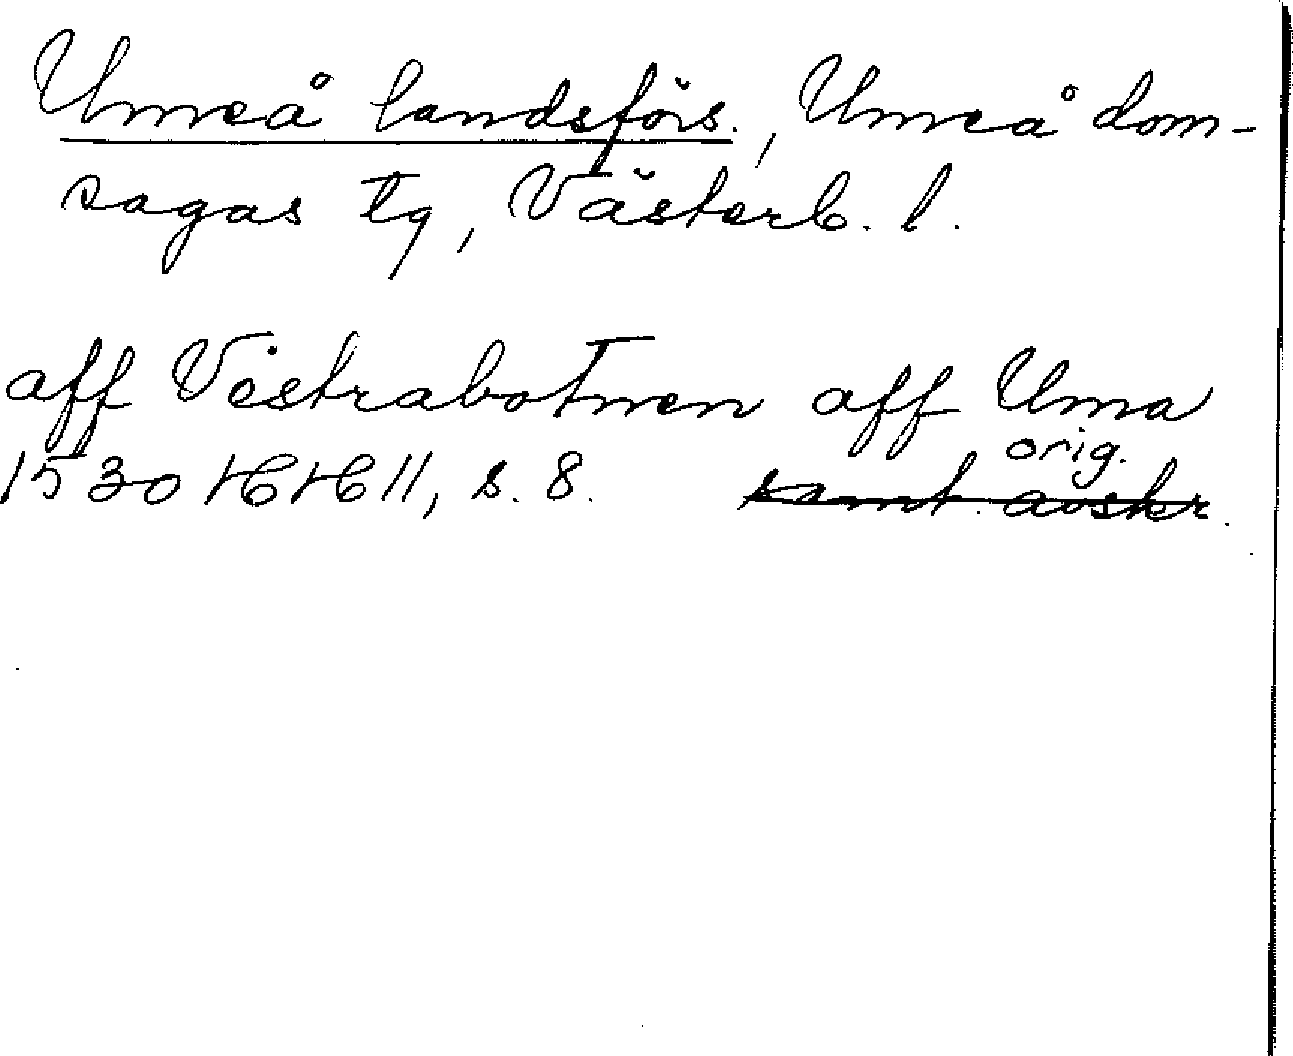 Umeå landsförs., Umeå dom-
sagas tg, Västerb. l.
aff Vestrabotnen aff Uma
orig.
1530 HH 11, s. 8. samt. avskr.